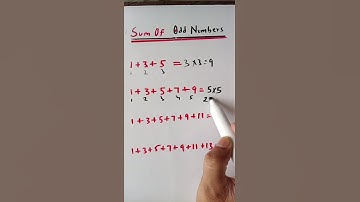 Sum Of Odd Numbers
1+3+5 = 3×3=9
1 2 3
1+3+5+7+9=5×5
1 2 3 4 5 2
1+3+5+7+9+11=
1+3+5+7+9+11+13